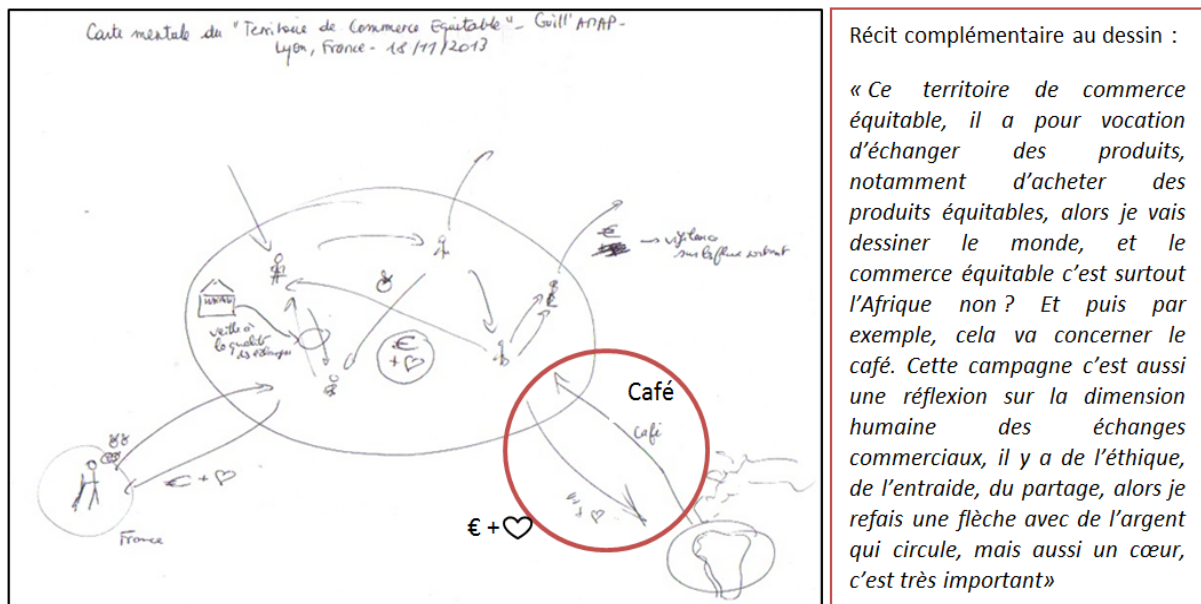 Carte mentale du "Territoire de Commerce Equitable" - Guill'AMAP -
Lyon, France - 18/11/2013
€
→ vigilance
sur les flux sortant
veille à
la qualité
des échanges
€
+ ♡
Café
Café
€ + ♡
€ + ♡
€ + ♡
France
Récit complémentaire au dessin :
« Ce territoire de commerce
équitable, il a pour vocation
d'échanger des produits,
notamment d'acheter des
produits équitables, alors je vais
dessiner le monde, et le
commerce équitable c'est surtout
l'Afrique non ? Et puis par
exemple, cela va concerner le
café. Cette campagne c'est aussi
une réflexion sur la dimension
humaine des échanges
commerciaux, il y a de l'éthique,
de l'entraide, du partage, alors je
refais une flèche avec de l'argent
qui circule, mais aussi un cœur,
c'est très important»